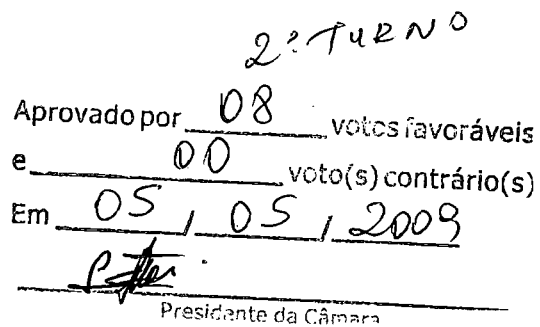 2º TURNO
Aprovado por 08 votos favoráveis
e 00 voto(s) contrário(s)
Em 05 / 05 / 2009
Presidente da Câmara